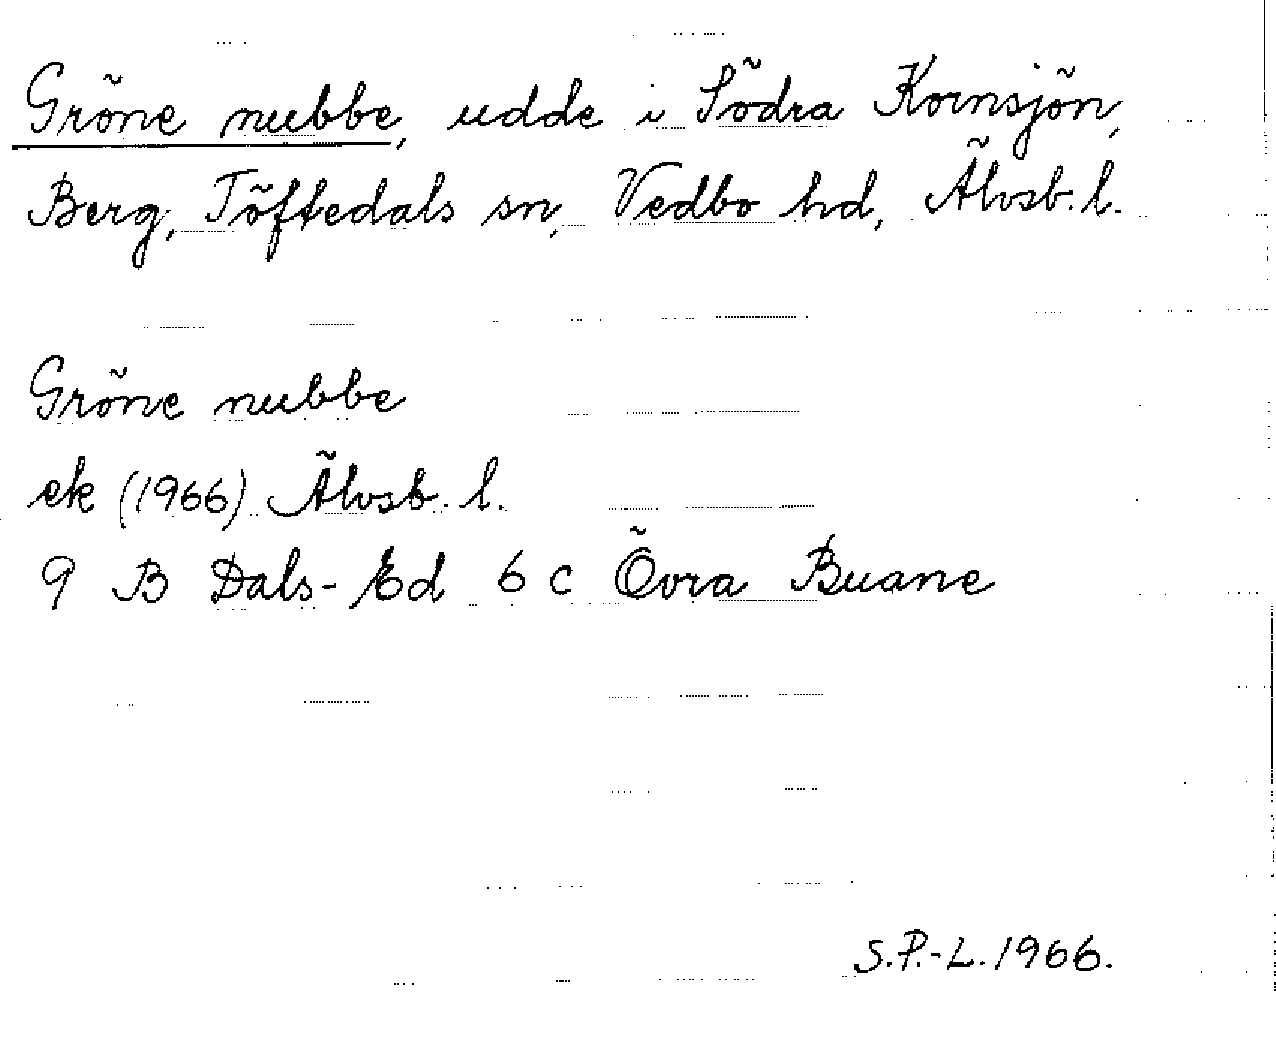 Gröne nubbe, udde i Södra Kornsjön,
Berg, Töftedals sn, Vedbo hd, Älvsb. l.
Gröne nubbe
ek (1966) Älvsb. l.
9 B Dals-Ed 6 c Övra Buane
S.P.-L. 1966.